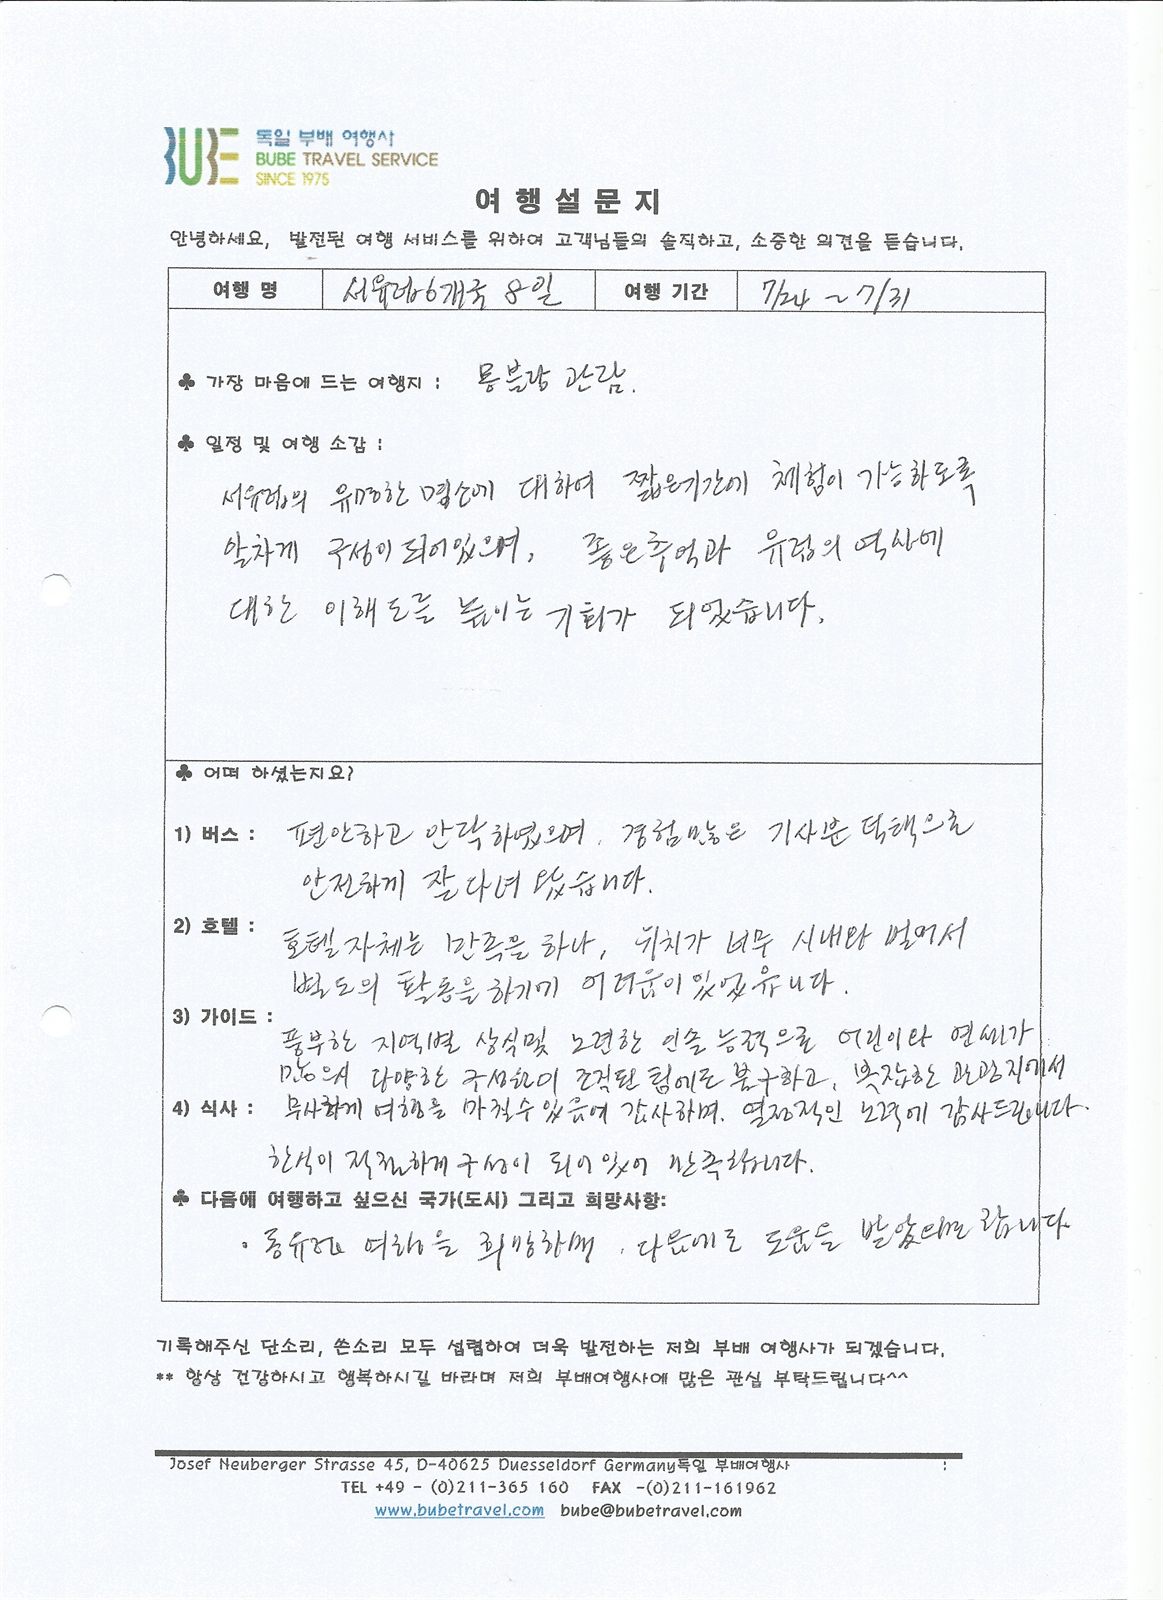 BUBE 독일 부배 여행사
BUBE TRAVEL SERVICE
SINCE 1975
여 행 설 문 지
안녕하세요, 발전된 여행 서비스를 위하여 고객님들의 솔직하고, 소중한 의견을 듣습니다.
여행 명 서유럽 6개국 8일 여행 기간 7/24 ~ 7/31
♣ 가장 마음에 드는 여행지 : 몽블랑 관람.
♣ 일정 및 여행 소감 :
서유럽의 유명한 명소에 대하여 짧은기간에 체험이 가능하도록
알차게 구성이 되어있으며, 좋은추억과 유럽의 역사에
대한 이해도를 높이는 기회가 되었습니다.
♣ 어떠 하셨는지요?
1) 버스 : 편안하고 안락하였으며, 경험많은 기사분 덕택으로
안전하게 잘 다녀 왔습니다.
2) 호텔 : 호텔 자체는 만족을 하나, 위치가 너무 시내와 멀어서
별도의 활동을 하기에 어려움이 있었읍니다.
3) 가이드 : 풍부한 지역별 상식및 노련한 인솔 능력으로 어린이와 연세가
많으신 다양한 구성원이 조직된 팀에도 불구하고, 복잡한 관광지에서
무사하게 여행을 마칠수 있음에 감사하며, 열정적인 노력에 감사드립니다.
4) 식사 :
한식이 적절하게 구성이 되어 있어 만족합니다.
♣ 다음에 여행하고 싶으신 국가(도시) 그리고 희망사항:
· 동유럽 여행을 희망하며, 다음에도 도움을 받았으면 합니다
기록해주신 단소리, 쓴소리 모두 섭렵하여 더욱 발전하는 저희 부배 여행사가 되겠습니다.
** 항상 건강하시고 행복하시길 바라며 저희 부배여행사에 많은 관심 부탁드립니다^^
Josef Neuberger Strasse 45, D-40625 Duesseldorf Germany독일 부배여행사 :
TEL +49 - (0)211-365 160 FAX -(0)211-161962
www.bubetravel.com bube@bubetravel.com